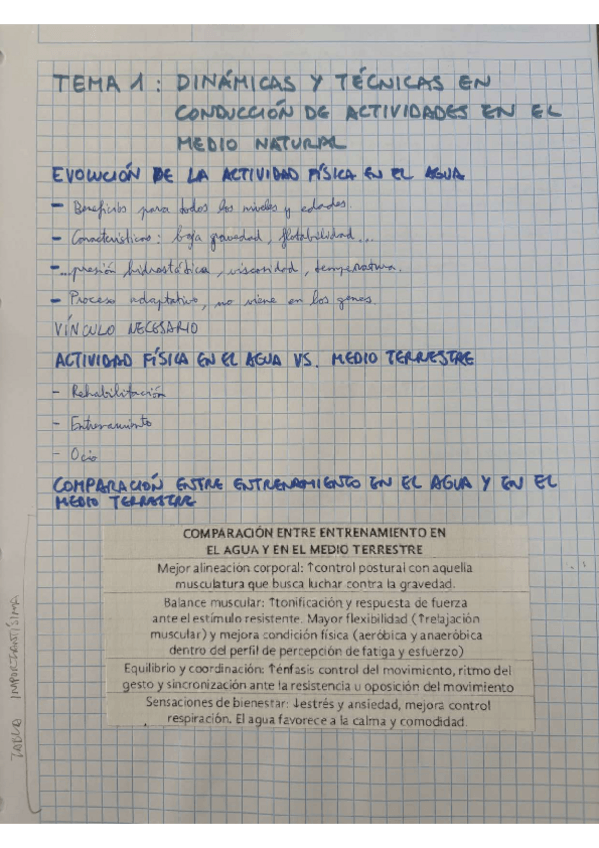 TEMA 1: DINÁMICAS Y TÉCNICAS EN
CONDUCCIÓN DE ACTIVIDADES EN EL
MEDIO NATURAL
EVOLUCIÓN DE LA ACTIVIDAD FÍSICA EN EL AGUA
- Beneficios para todos los niveles y edades.
- Características: baja gravedad, flotabilidad...
- ...presión hidrostática, viscosidad, temperatura.
- Proceso adaptativo, no viene en los genes.
VÍNCULO NECESARIO
ACTIVIDAD FÍSICA EN EL AGUA VS. MEDIO TERRESTRE
- Rehabilitación
- Entrenamiento
- Ocio
COMPARACIÓN ENTRE ENTRENAMIENTO EN EL AGUA Y EN EL
MEDIO TERRESTRE
COMPARACIÓN ENTRE ENTRENAMIENTO EN
EL AGUA Y EN EL MEDIO TERRESTRE
Mejor alineación corporal: ↑control postural con aquella
musculatura que busca luchar contra la gravedad.
Balance muscular: ↑tonificación y respuesta de fuerza
ante el estímulo resistente. Mayor flexibilidad (↑relajación
muscular) y mejora condición física (aeróbica y anaeróbica
dentro del perfil de percepción de fatiga y esfuerzo)
Equilibrio y coordinación: ↑énfasis control del movimiento, ritmo del
gesto y sincronización ante la resistencia u oposición del movimiento
Sensaciones de bienestar: ↓estrés y ansiedad, mejora control
respiración. El agua favorece a la calma y comodidad.
TABLA IMPORTANTÍSIMA